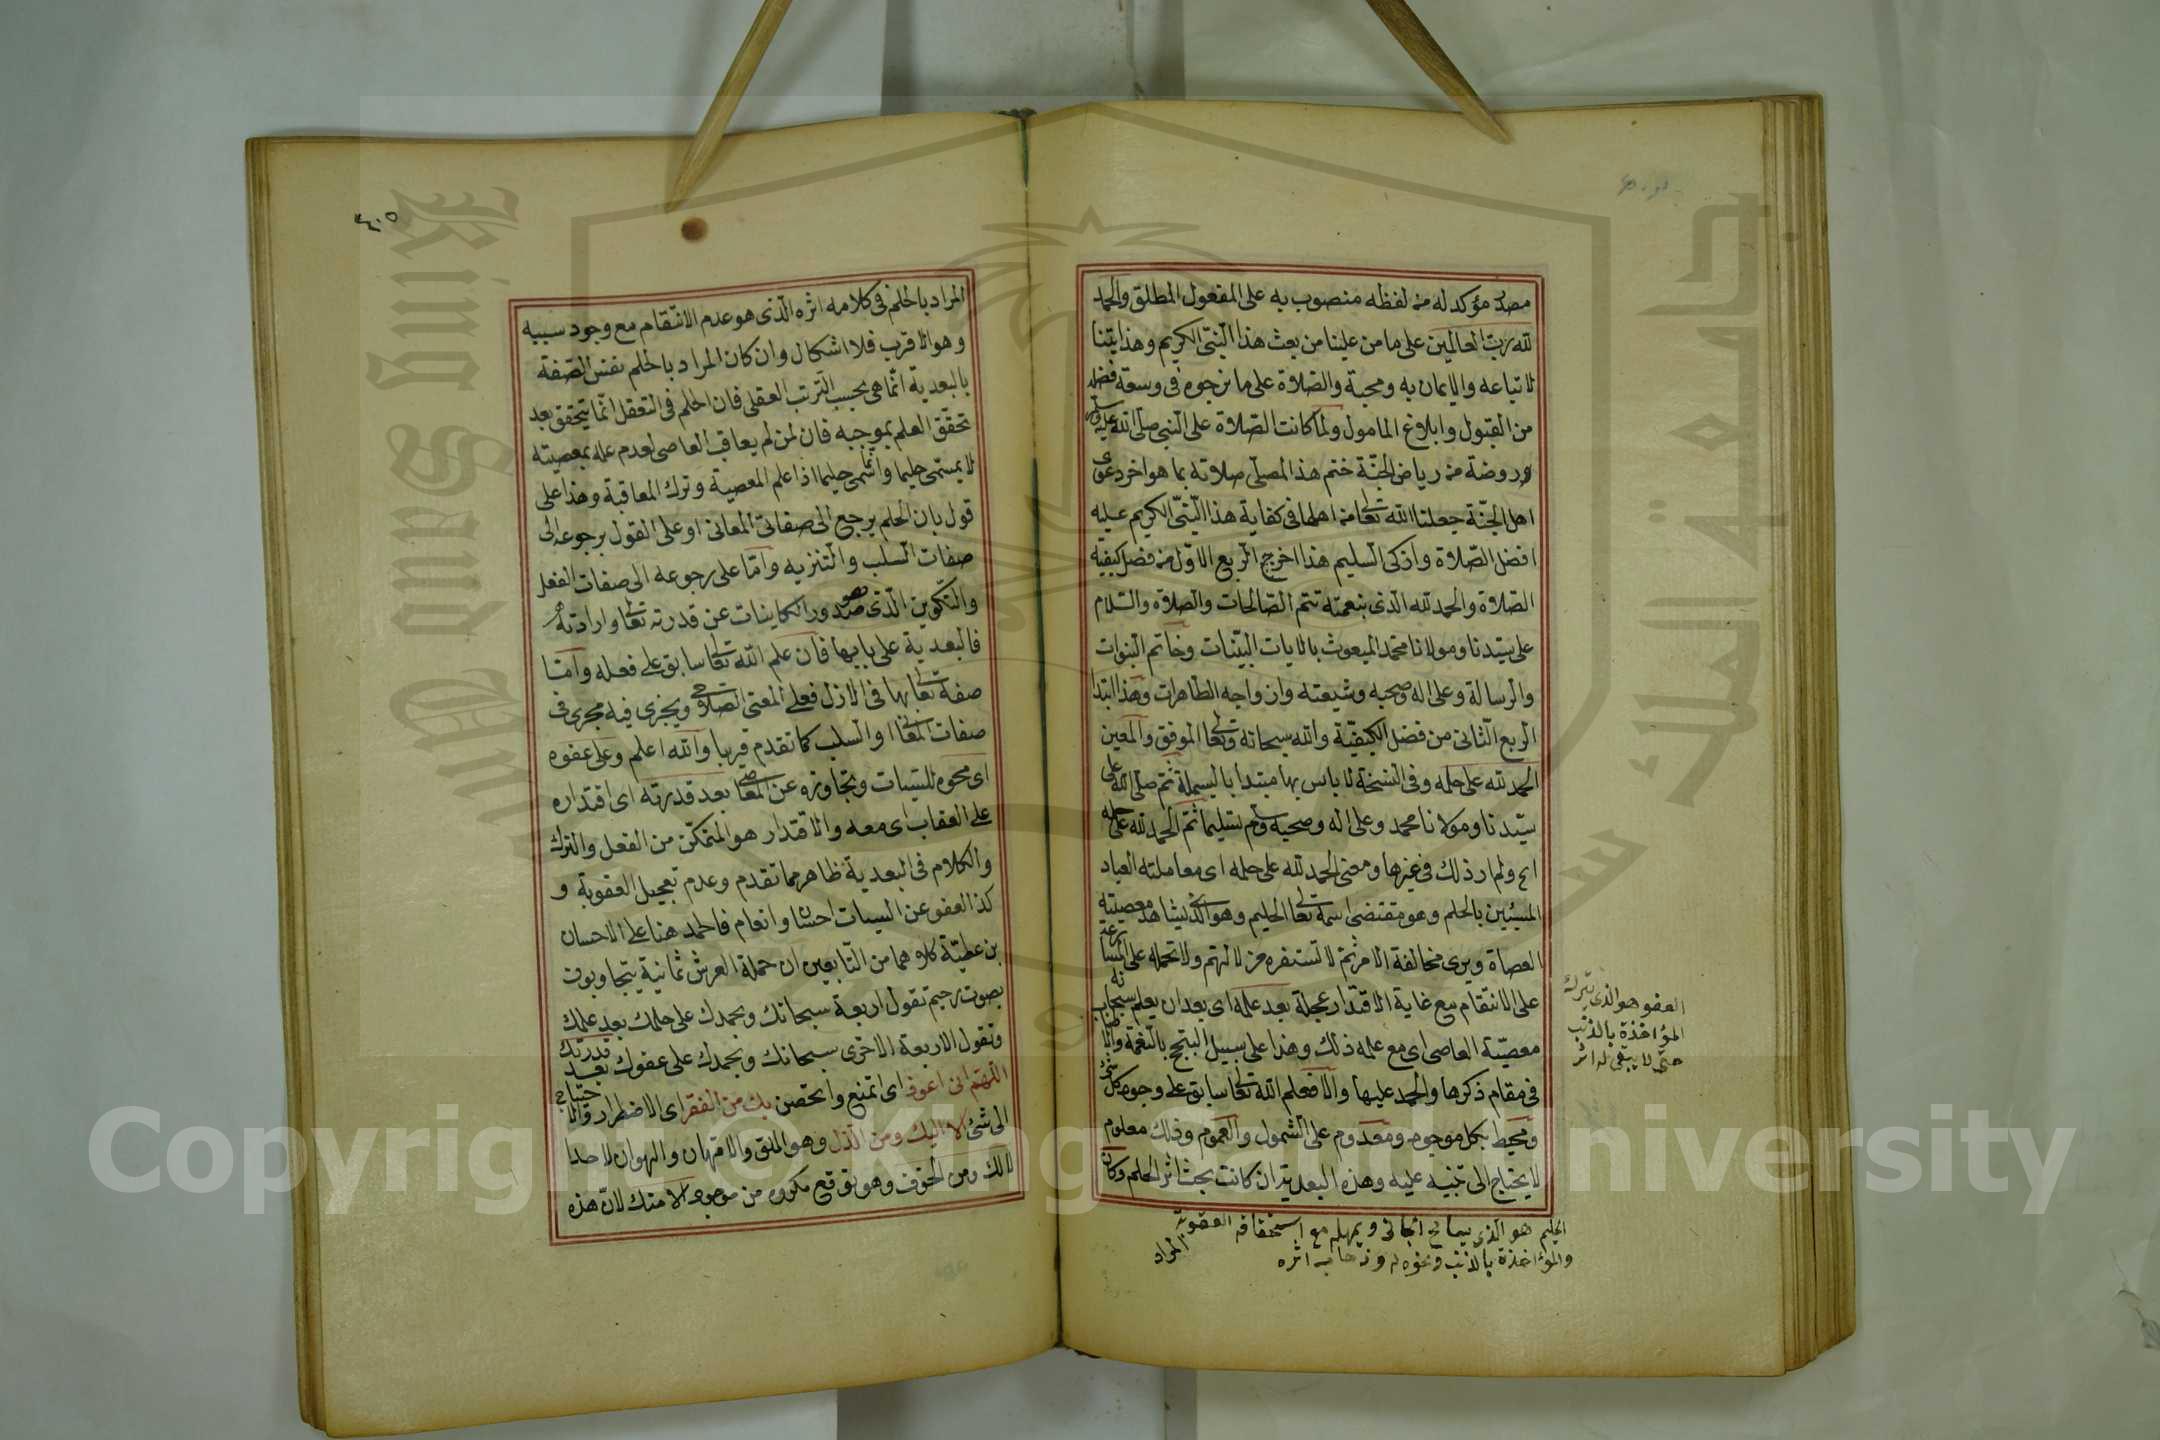 مصدر مؤكد له من لفظه منصوب به على المفعول المطلق والحمد
لله رب العالمين على ما من علينا من بعث هذا النبي الكريم وهدايتنا
لاتباعه والايمان به ومحبة والصلاة على ما نرجوه في وسعة فضله
من القبول وابلاغ المامول ولما كانت الصلاة على النبي صلى الله عليه وسلم
روضة من رياض الجنة ختم هذا المصلى صلاته بما هو اخر دعوى
اهل الجنة جعلنا الله تعالى من اهلها في كفاية هذا النبي الكريم عليه
افضل الصلاة وازكى السليم هذا اخر ج الربع الاول من فضل كيفية
الصلاة والحمد لله الذى بنعمته تتم الصالحات والصلاة والسلام
على سيدنا ومولانا محمد المبعوث بالايات البينات وخاتم النبوات
والرسالة وعلى اله وصحبه وشيعته وازواجه الطاهرات وهذا ابتدا
الربع الثاني من فضل الكيفية والله سبحانه وتعالى الموفق والمعين
الحمد لله على حلمه وفي النسخة لا باس بها مبتدا بالبسملة ثم صلى الله على
سيدنا ومولانا محمد وعلى اله وصحبه وسلم تسليما ثم الحمد لله على حلمه
اع ولم ار ذلك في غيرها ومعنى الحمد لله على حلمه اى معاملته العباد
المسيئين بالحلم وهو مقتضى اسمه تعالى الحليم وهو الذى يشاهد معصيته
العصاة ويرى مخالفة الامر ثم لا تستفزه ولا تحمله على المسارعة
على الانتقام مع غاية الاقتدار عجلة بعد علمه اى بعد ان يعلم سبحانه
معصية العاصى اى مع علمه ذلك وهذا على سبيل التبجح بالنغمة واطا
في مقام ذكرها والحمد عليها والا فعلم الله تعالى سابق على وجود كل شئ
ومحيط بكل موجود ومعدوم على الشمول والعموم وذلك معلوم
لا يحتاج الى تنبيه عليه وهذه البعدية ان كانت بحث اثر الحلم وكان
العفو هو الذى يترك
المؤاخذة بالذنب
حتى لا يبقى له اثر
الحليم هو الذى يسامح الجانى ويمهله مع استحقاقه العقوبة
والمؤاخذة بالذنب ومحوه له وذهاب اثره
المراد
٤٠٥
المراد بالحلم في كلامه اثره الذى هو عدم الانتقام مع وجود سببه
وهو الاقرب فلا اشكال وان كان المراد بالحلم نفس الصفة
بالبعدية انما هي بحسب الترتب العقلي فان الحلم في التعقل انما يتحقق بعد
تحقق العلم بموجبه فان لمن لم يعاقب العاصى لعدم علمه بمعصيته
لا يسمى حليما وانما يسمى حليما اذا علم المعصية وترك المعاقبة وهذا على
قول بان الحلم يرجع الى صفاتى المعانى او على القول برجوعه الى
صفات السلب والتنزيه واما على رجوعه الى صفات الفعل
والتكوين الذى هو صدور الكاينات عن قدرته تعالى وارادته
فالبعدية على بابها فان علم الله تعالى سابق على فعله واما
صفة تعالى بها في الازل فعلى المعنى الصلاحى ويجرى فيه مجرى في
صفات المعانى او السلب كما تقدم قريبا والله اعلم وعلى عفوه
اى محوه للسيئات وتجاوزه عن المعاصى بعد قدرته اى اقتداره
على العقاب اى معه والاقتدار هو المتمكن من الفعل والترك
والكلام في البعدية ظاهر مما تقدم وعدم تعجيل العقوبة و
كذا العفو عن السيئات احسان وانعام فالحمد هنا على الاحسان
بن عطية كلاهما من التابعين ان حملة العرش ثمانية يتجاوبون
بصوت رحيم تقول اربعة سبحانك وبحمدك على حلمك بعد علمك
وتقول الاربعة الاخرى سبحانك وبحمدك على عفوك بعد قدرتك
اللهم انى اعوذ اى اتمنع واتحصن بك من الفقر اى الاضطرار والاحتياج
الى شئ الا اليك ومن الذل وهو الملق والامتهان والهوان لاحد الا
لك ومن الخوف وهو توقع مكروه من موجود الا منك لان هذه
Copyright © King Saud University
King Saud University
جامعة الملك سعود